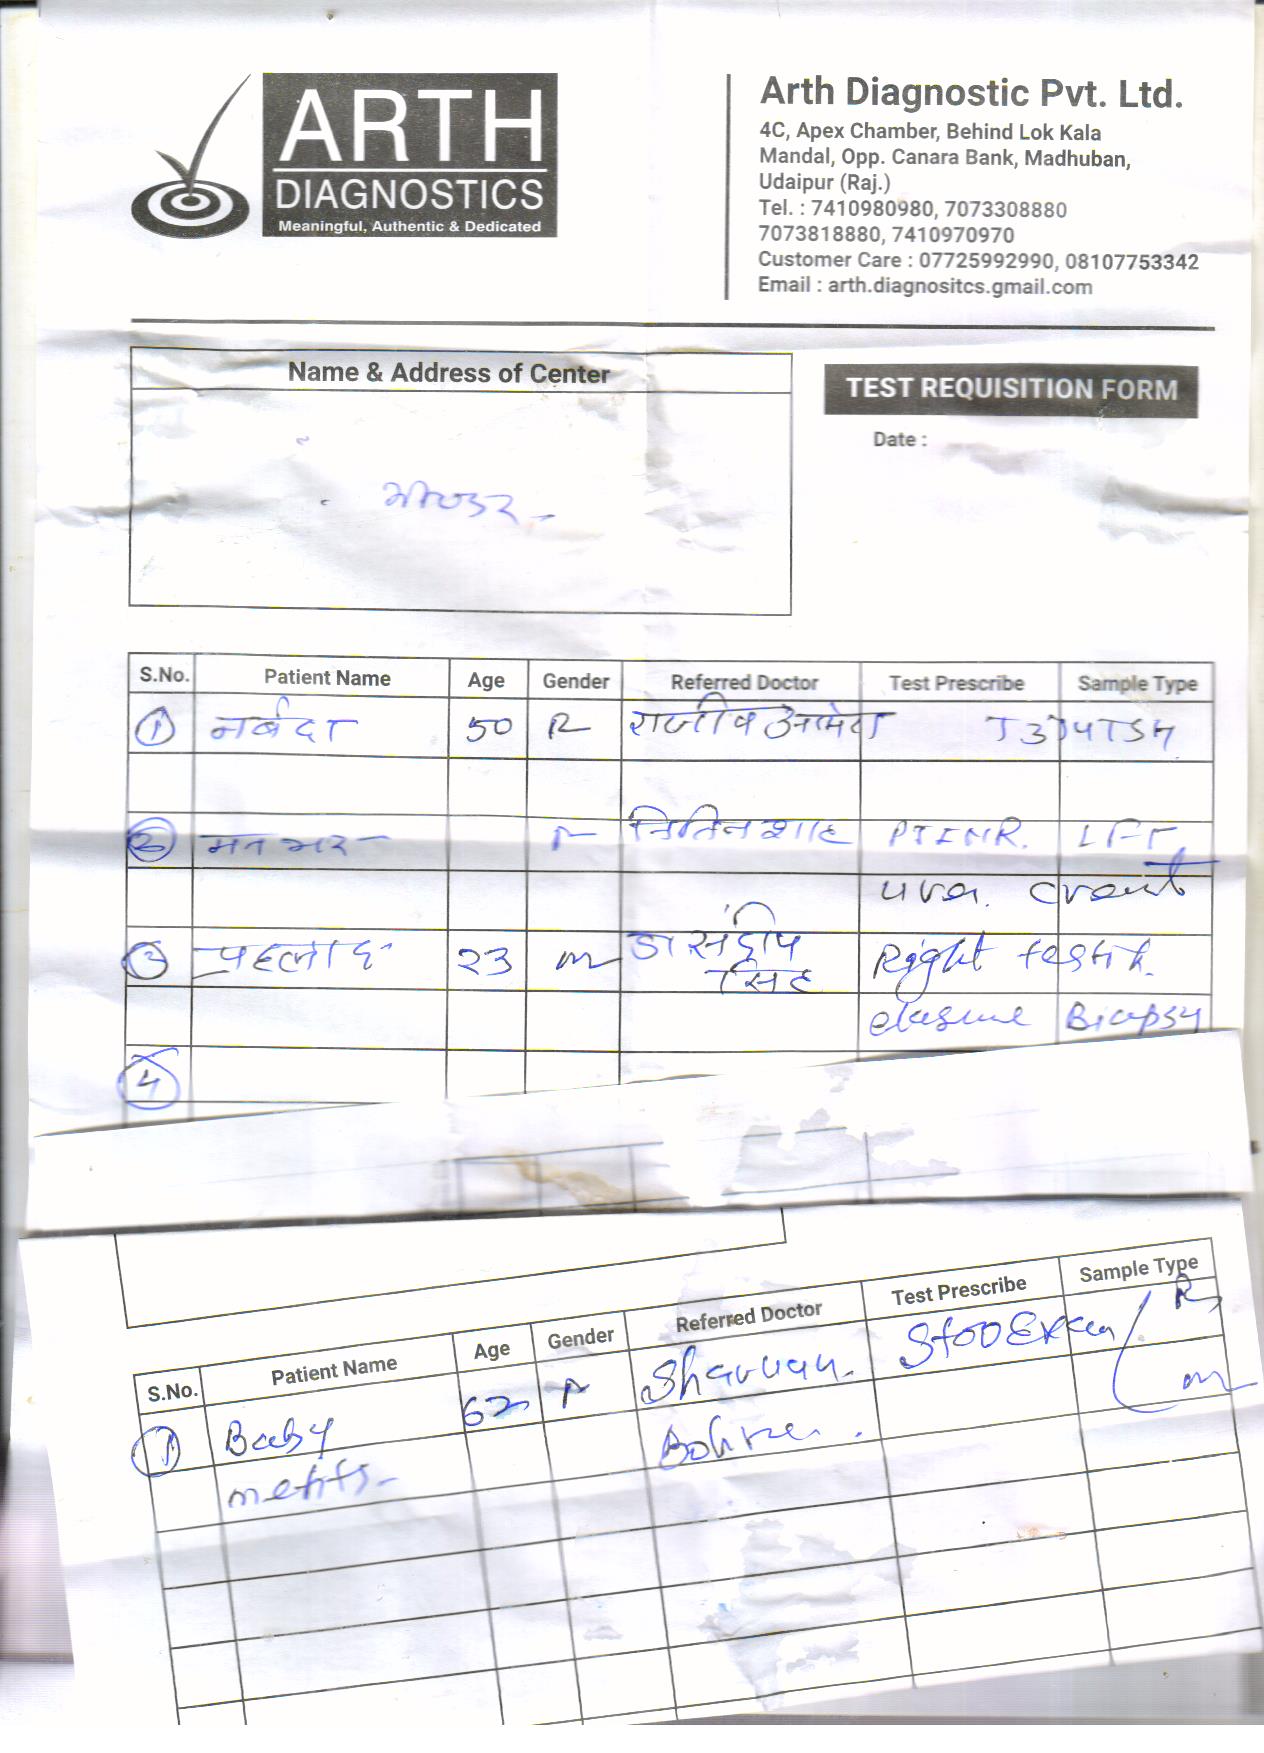 ARTH
DIAGNOSTICS
Meaningful, Authentic & Dedicated
Arth Diagnostic Pvt. Ltd.
4C, Apex Chamber, Behind Lok Kala
Mandal, Opp. Canara Bank, Madhuban,
Udaipur (Raj.)
Tel. : 7410980980, 7073308880
7073818880, 7410970970
Customer Care : 07725992990, 08107753342
Email : arth.diagnositcs.gmail.com
Name & Address of Center
TEST REQUISITION FORM
Date :
S.No. Patient Name Age Gender Referred Doctor Test Prescribe Sample Type
1 नर्बदा 50 राजीव आमेटा T3T4TSH
2 मनभर नितिन शाह PTINR. LFT
3 23 m डा संदीप Right
सिंह Biopsy
4
S.No. Patient Name Age Gender Referred Doctor Test Prescribe Sample Type
1 Baby 62